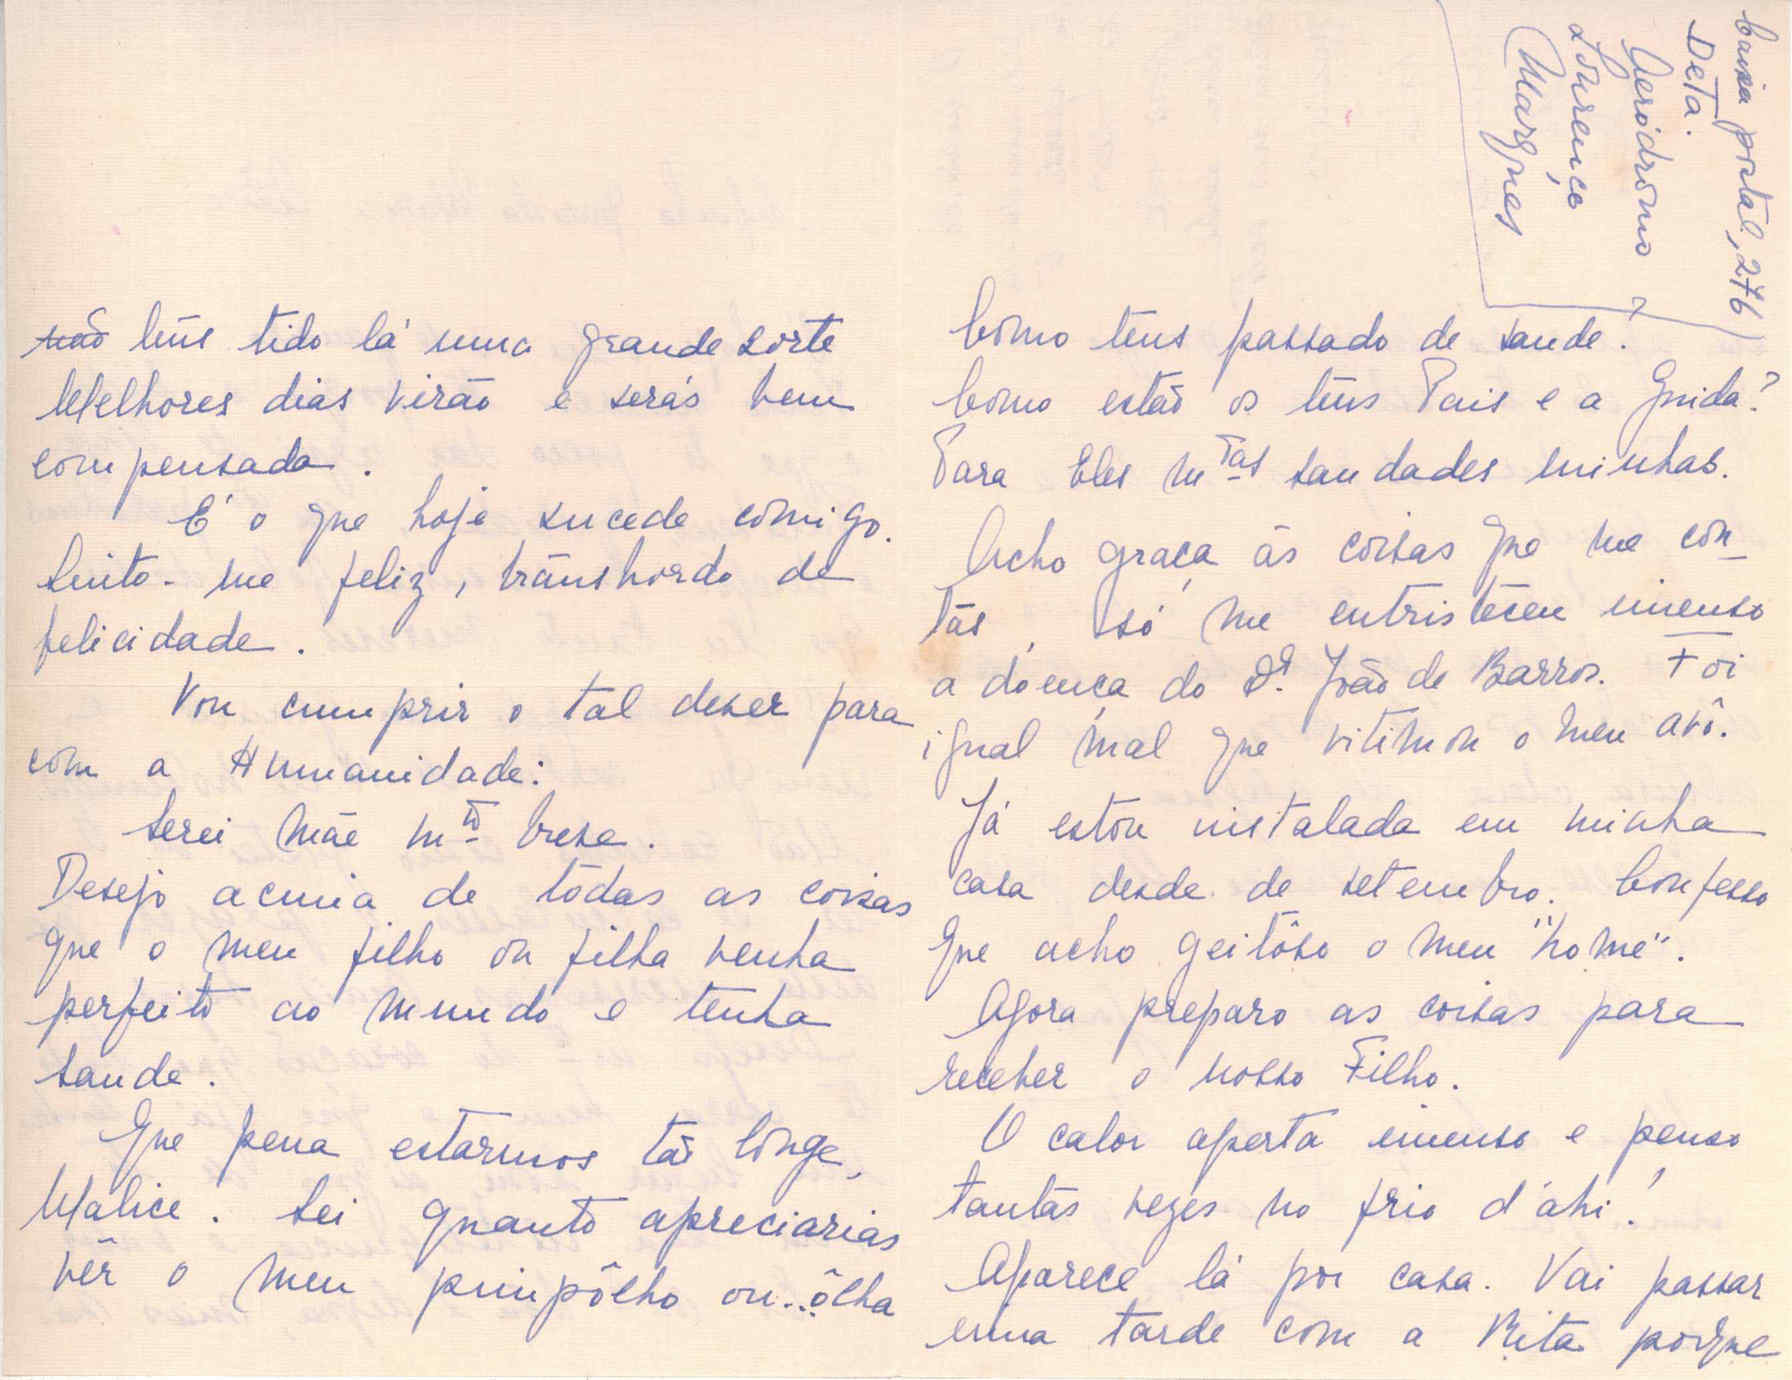 não tens tido lá uma grande sorte
Melhores dias virão e serás bem
compensada.
É o que hoje sucede comigo.
Sinto-me feliz, transbordo de
felicidade.
Vou cumprir o tal dever para
com a Humanidade:
Serei Mãe mto breve.
Desejo acima de tôdas as coisas
que o meu filho ou filha venha
perfeito ao mundo e tenha
saude.
Que pena estarmos tão longe,
Malice. Sei quanto apreciarias
vêr o meu pimpôlho ou...ôlha
Caixa postal, 276
Deta.
Aeródromo
Lourenço
Marques
Como tens passado de saude?
Como estão os teus Pais e a Guida?
Para Eles mtas saudades minhas.
Acho graça às coisas que me con-
tas, só me entristeceu imenso
a doença do Dr. João de Barros. Foi
igual mal que vitimou o meu avô.
Já estou instalada em minha
casa desde de setembro. Confesso
que acho geitôso o meu "home".
Agora preparo as coisas para
receber o nosso Filho.
O calor aperta imenso e penso
tantas vezes no frio d'ahi!
Aparece lá por casa. Vai passar
uma tarde com a Rita porque